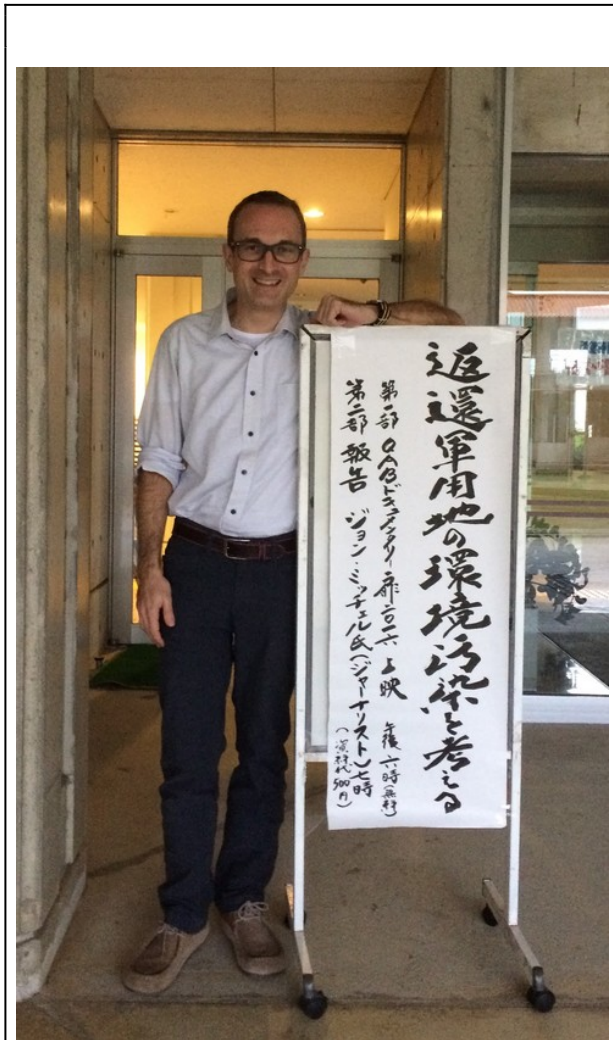 返還軍用地の環境汚染を考える
第一部 QABドキュメンタリー 二〇一六 上映 午後 六時(無料)
第二部 報告 ジョン・ミッチェル氏(ジャーナリスト)七時
(資料代500円)